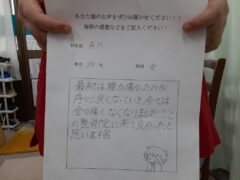 あなた様のお声をぜひお聞かせください！！
施術の感想などをご記入ください！
お名前 A.H
年代 10代 性別 女
最初は腰が痛かったのが
序々に良くなっていき、今では
全々痛くなくなりました。ここ
の整骨院に来て良かったと
思います